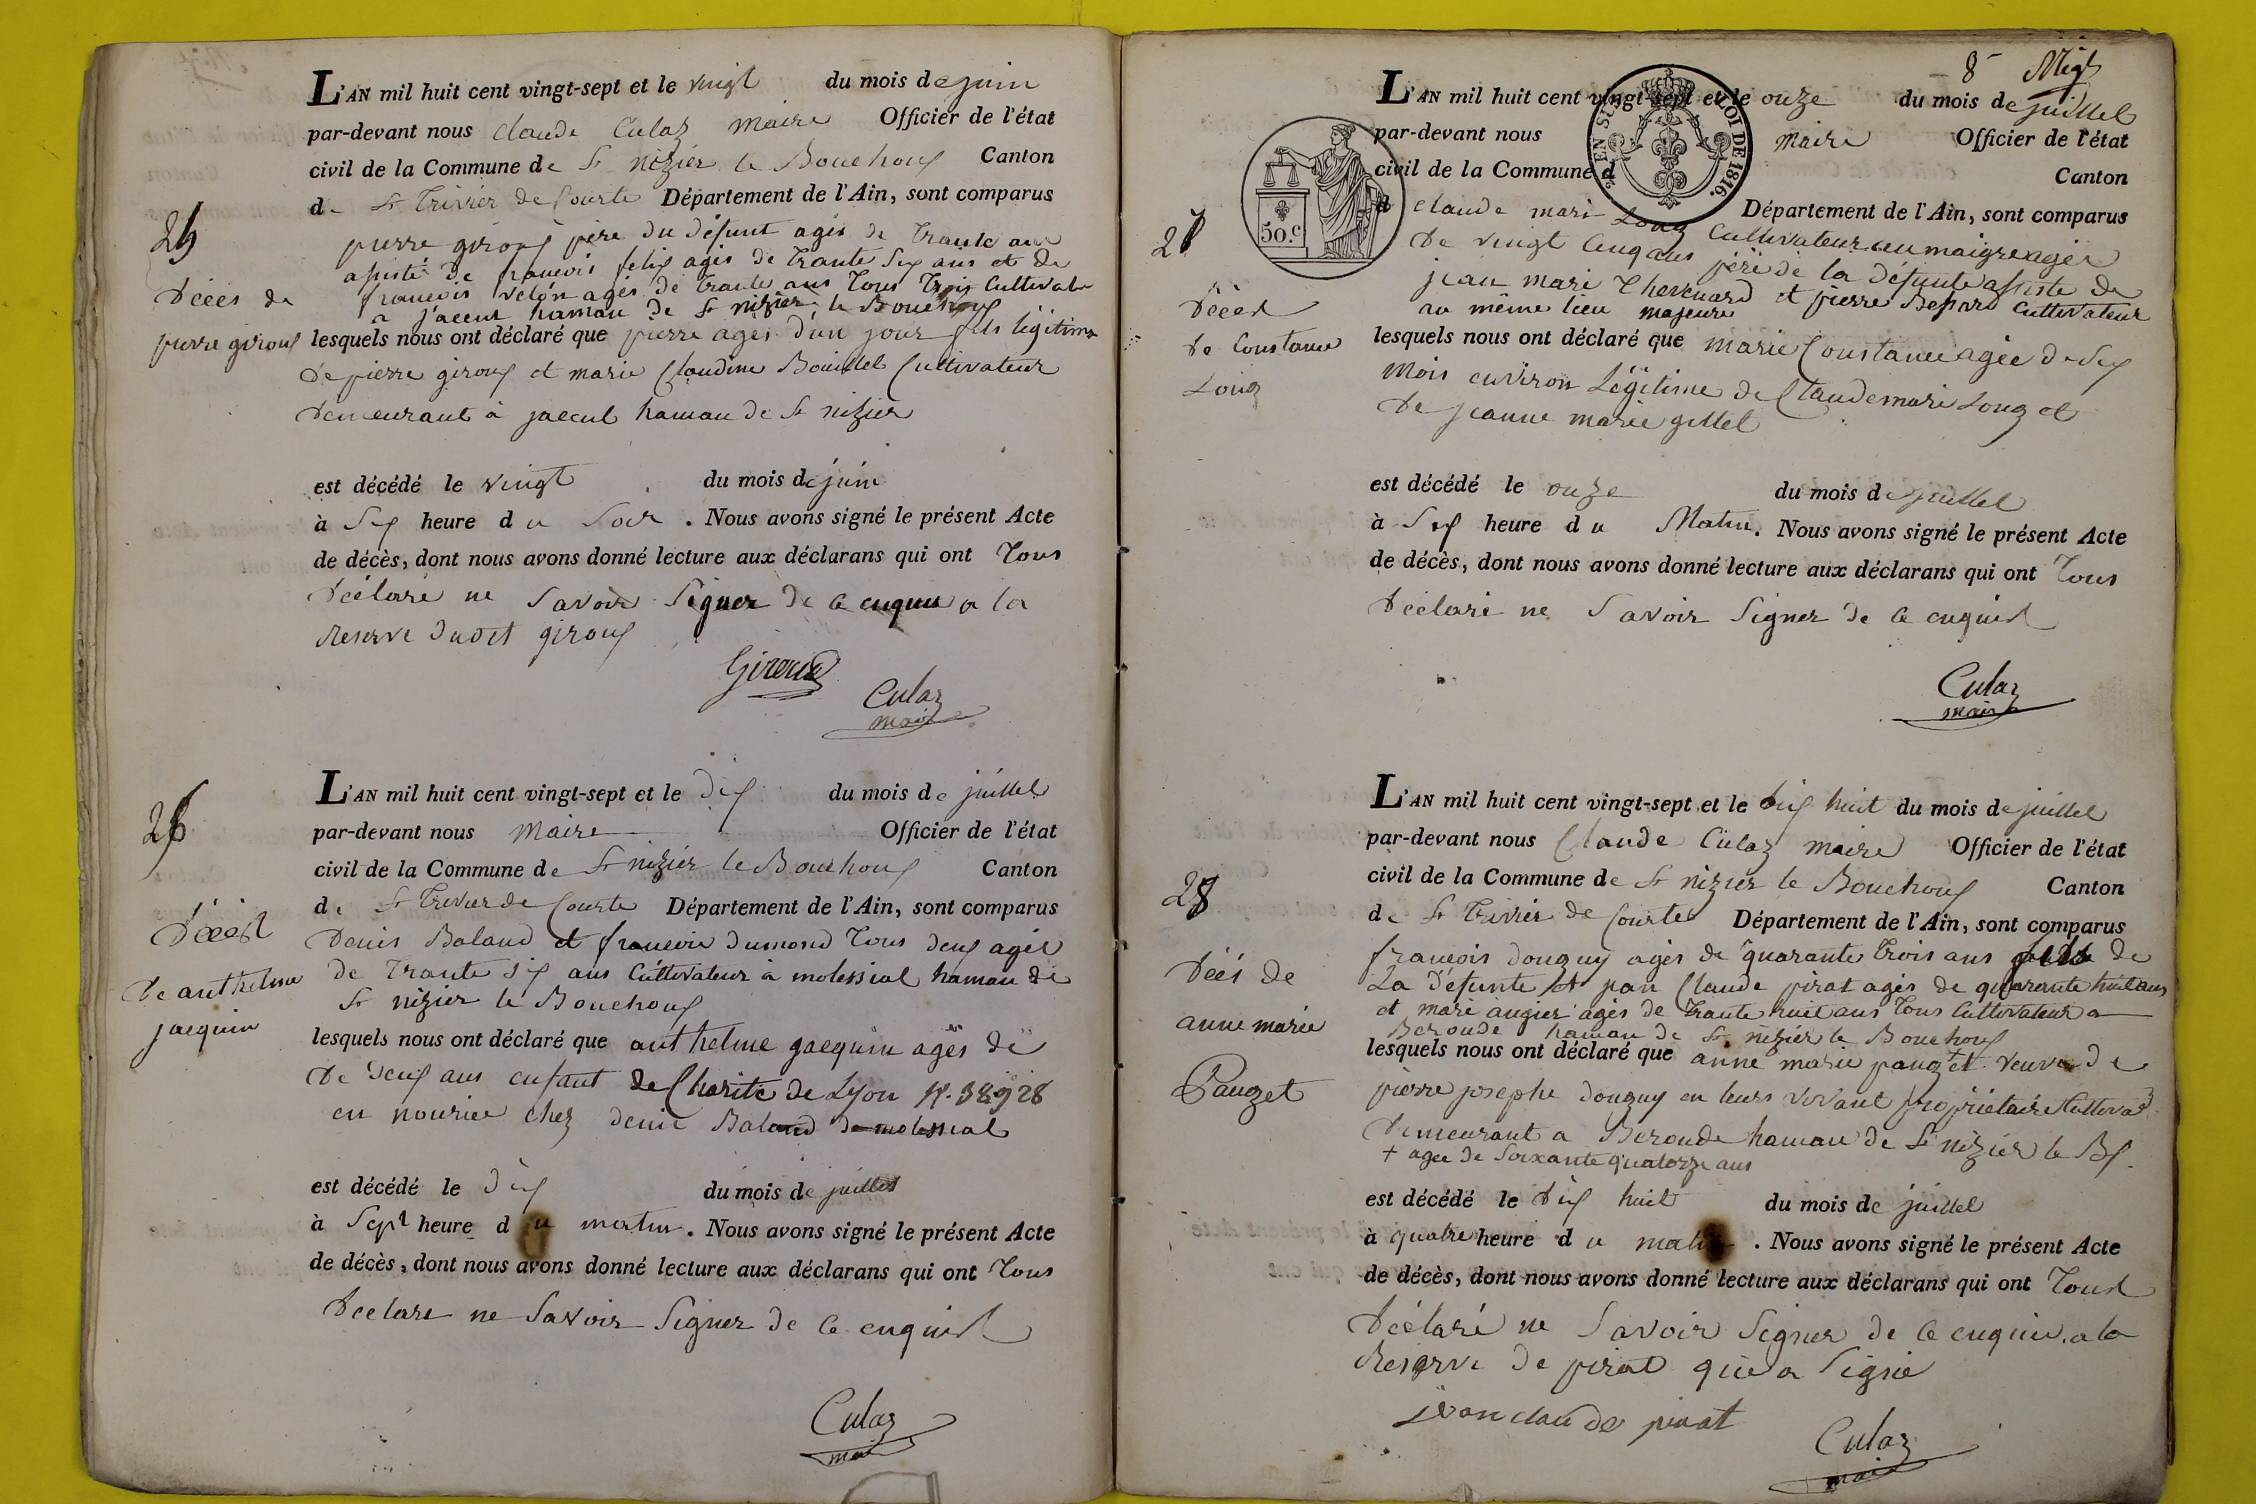 L'AN mil huit cent vingt-sept et le vingt du mois de juin
par-devant nous claude Culaz maire Officier de l'état
civil de la Commune de St nizier le Bouchoux Canton
de St Trivier de Courte Département de l'Ain, sont comparus
pierre giroux père du défunt agés de trante ans
assisté de francois felix agés de trante six ans et de
francois velon agés de trante ans tous trois Cultivat
a jacent hamau de St nizier le Bouchoux
25
Décés de
pierre giroux
lesquels nous ont déclaré que pierre agés d'un jour fils légitime
de pierre giroux et marie Claudine Bouillet Cultivateur
demeurant à jacent hamau de St nizier
est décédé le vingt du mois de juin
à six heure du Soir. Nous avons signé le présent Acte
de décès, dont nous avons donné lecture aux déclarans qui ont tous
déclaré ne Savoir Signer de ce enquis a la
Reserve dudit giroux
Giroud
Culaz
maire
L'AN mil huit cent vingt-sept et le dix du mois de juillet
par-devant nous maire Officier de l'état
civil de la Commune de St nizier le Bouchoux Canton
de St Trivier de Courte Département de l'Ain, sont comparus
Denis Baland et francois dumond tous deux agés
de trante six ans Cultivateur à molessiat hamau de
St nizier le Bouchoux
26
Décès
de anthelme
jacquin
lesquels nous ont déclaré que anthelme jacquin agés de
de deux ans enfant de Charité de Lyon N. 38928
en nourice chez denis Baland de molessiat
est décédé le dix du mois de juillet
à Sept heure du matin. Nous avons signé le présent Acte
de décès, dont nous avons donné lecture aux déclarans qui ont tous
déclare ne Savoir Signer de ce enquis
Culaz
mai
8
L'AN mil huit cent vingt-sept et le onze du mois de juillet
par-devant nous maire Officier de l'état
civil de la Commune d Canton
d claude mari Long Département de l'Ain, sont comparus
LOI DE 1816.
50.c
Cultivateur au maigre agés
de vingt cinq ans père de la defunte assisté de
jean mari thevenard et pierre Cultivateur
au même lieu majeure
27
Décès
de Constance
Long
lesquels nous ont déclaré que marie Constance agée de six
mois environ Légitime de Claude mari Long et
de jeanne marie gillet
est décédé le onze du mois de juillet
à six heure du Matin. Nous avons signé le présent Acte
de décès, dont nous avons donné lecture aux déclarans qui ont tous
déclaré ne Savoir Signer de ce enquis
Culaz
maire
L'AN mil huit cent vingt-sept et le dix huit du mois de juillet
par-devant nous Claude Culaz maire Officier de l'état
civil de la Commune de St nizier le Bouchoux Canton
de St Trivier de Courtes Département de l'Ain, sont comparus
francois donguy agés de quarante trois ans fils de
La défunte et jean Claude pirat agés de quarante huit ans
et mari augier agés de trante huit ans tous Cultivateur a
Beronde hamau de St nizier le Bouchoux
28
Décés de
anne marie
Pauget
lesquels nous ont déclaré que anne marie pauget veuve de
pierre josephe donguy en leurs vivant propriétaire Cultivat
demeurant a Beronde hamau de St nizier le Bx.
+ agée de Soixante quatorze ans
est décédé le dix huit du mois de juillet
à quatre heure du matin. Nous avons signé le présent Acte
de décès, dont nous avons donné lecture aux déclarans qui ont tous
déclaré ne Savoir Signer de ce enquis. a la
Reserve de pirat qui a Signé
jean claude pirat
Culaz
maire